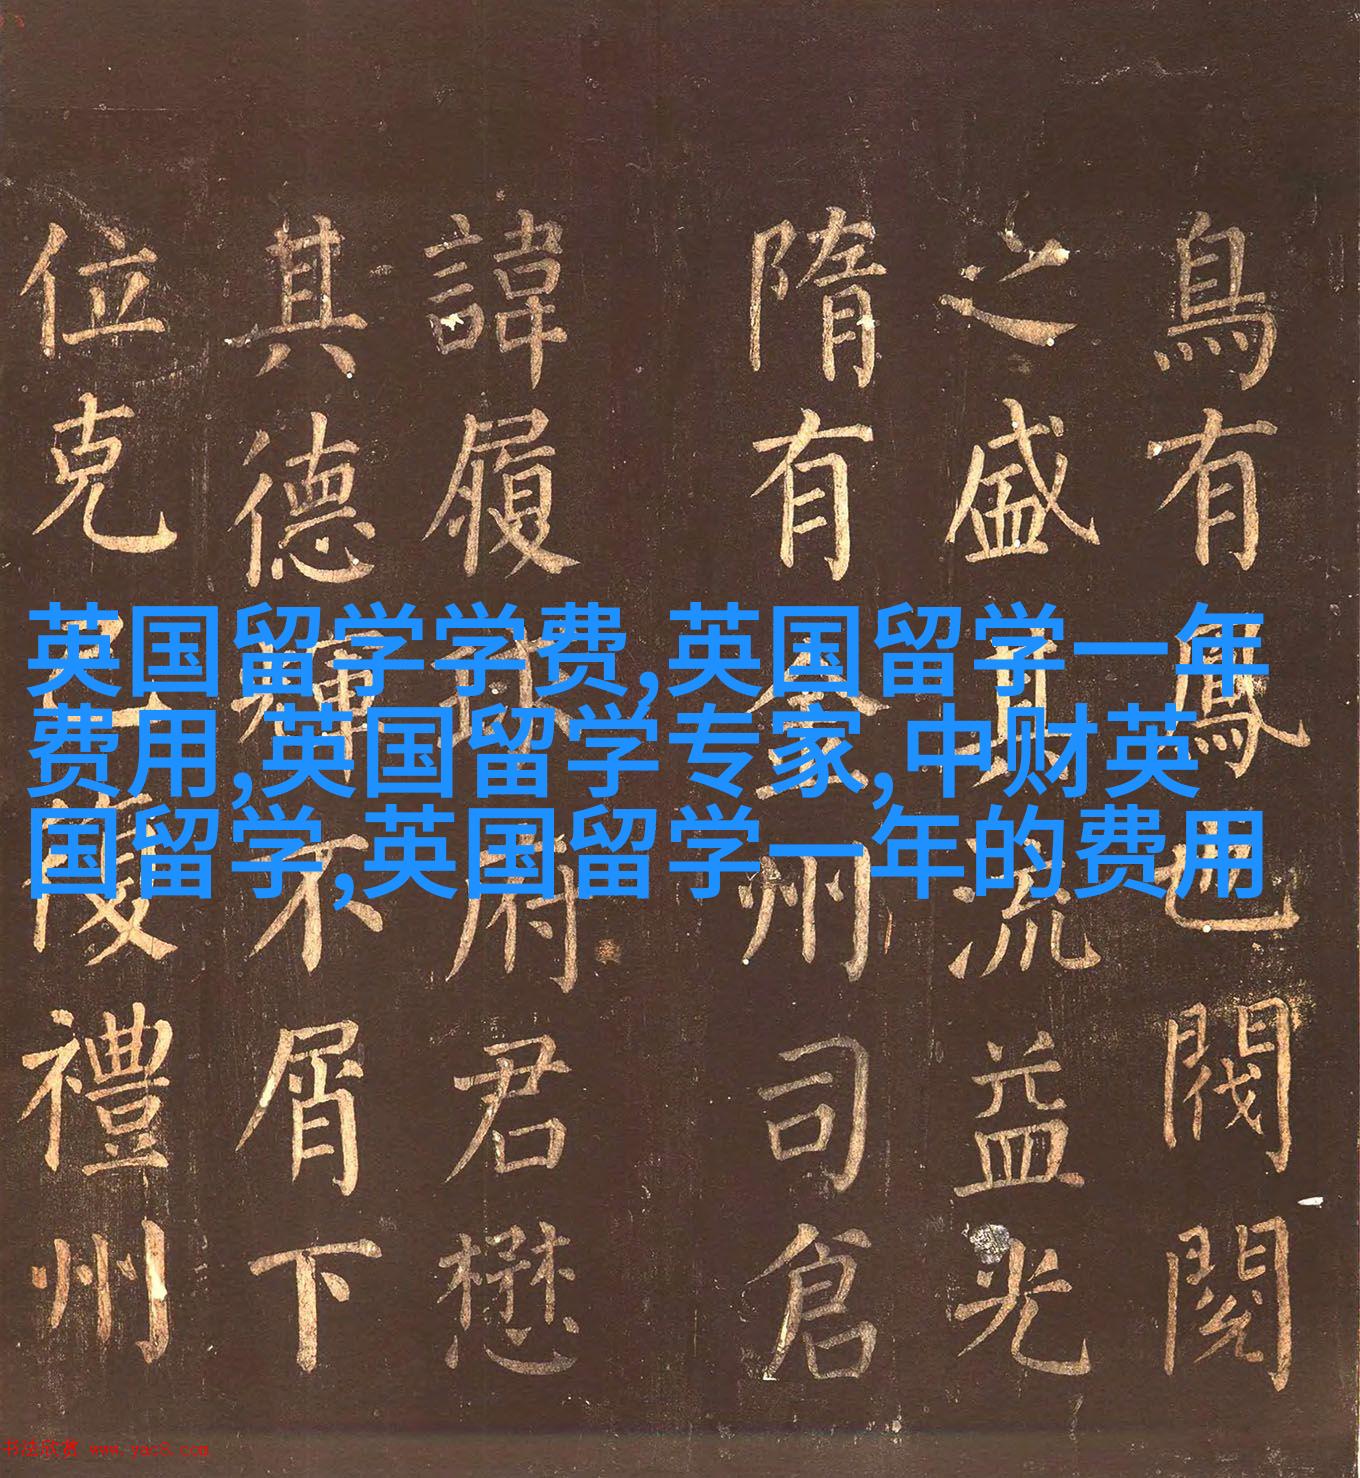 鳥有鳳也閥閱
之盛其流益光
隋有金州司倉
諱履武府君懋
其德輝不屑下
位克己復禮州
英国留学学费,英国留学一年
费用,英国留学专家,中财英
国留学,英国留学一年的费用
书法欣赏 www.yac8.com